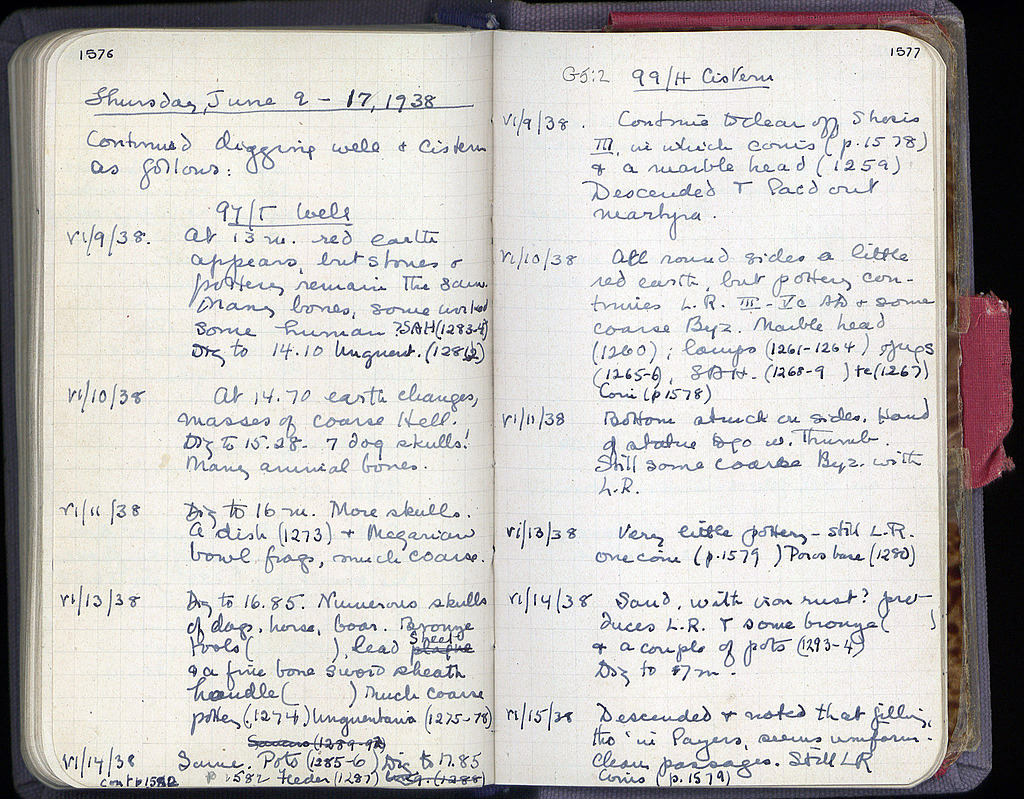 1576
Thursday, June 9 - 17, 1938
Continued digging well & cistern
as follows:
97/T Well
VI/9/38. At 13 m. red earth
appears, but stones &
pottery remain the same.
Many bones, some worked
some human ?SAH (1283-4)
Dig to 14.10 Unguent. (1282)
VI/10/38 At 14.70 earth changes,
masses of coarse Hell.
Dig to 15.28. 7 dog skulls!
Many animal bones.
VI/11/38 Dig to 16 m. More skulls.
A dish (1273) & Megarian
bowl frags, much coarse.
VI/13/38 Dig to 16.85. Numerous skulls
of dogs, horse, boar. Bronze
tools ( ), lead sheet plaque
& a fine bone sword sheath
handle ( ) Much coarse
pottery (1274) Unguentaria (1275-78)
Saucers (1289-92)
VI/14/38 Same. Pots (1285-6) Dig to 17.85
cont p 1582 p 1582 Feeder (1287) (1288)
1577
G5:2 99/H Cistern
VI/9/38. Continue to clear off Thesis
III, in which coins (p. 1578)
& a marble head (1259)
Descended T Paed out
martyra.
VI/10/38 All round sides a little
red earth, but pottery con-
tinues L.R. III-Vc AD & some
coarse Byz. Marble head
(1260); lamps (1261-1264) jugs
(1265-6), SAH. (1268-9) tc (1267)
Coin (p 1578)
VI/11/38 Bottom struck on sides. Hand
of statue w. Thumb.
Still some coarse Byz. with
L.R.
VI/13/38 Very little pottery - still L.R.
one coin (p. 1579) Poros base (1280)
VI/14/38 Sand, with iron rust? pro-
duces L.R. T some bronze ( )
& a couple of pots (1293-4)
Dig to 7 m.
VI/15/38 Descended & noted that filling,
tho' in layers, seems uniform.
Clean passages. Still LR
Coins (p. 1579)